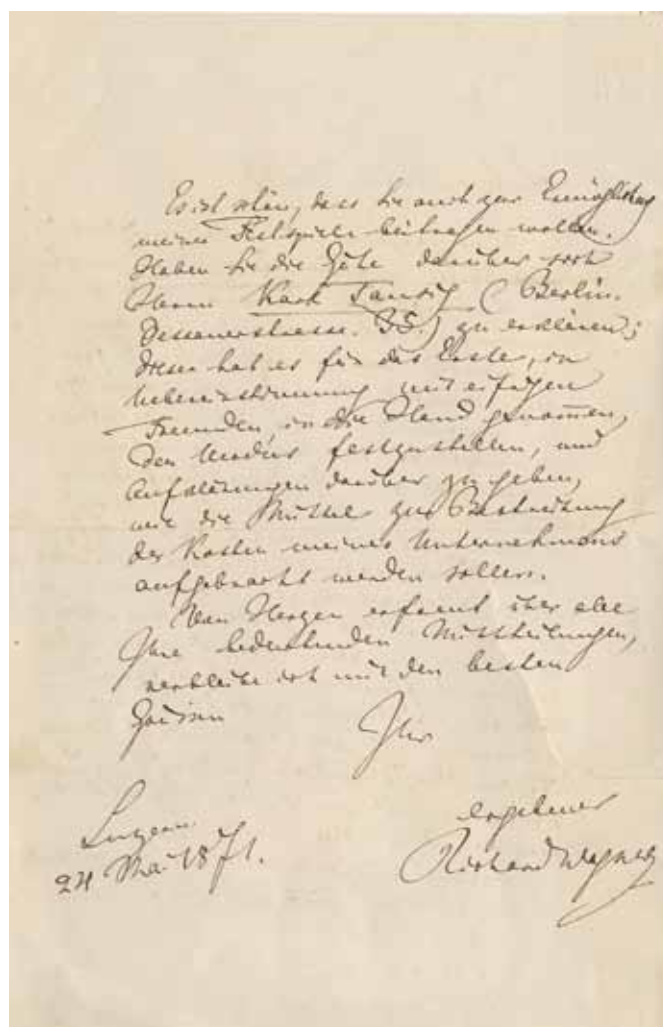 Es ist schön, dass Sie auch zur Ermöglichung
meiner Festspiele beitragen wollen.
Haben Sie die Güte darüber sich
Herrn Karl Tausig (Berlin.
Dessauerstrasse. 35.) zu erklären;
dieser hat es für das Erste, in
Uebereinstimmung mit eifrigen
Freunden, in die Hand genommen,
den Modus festzustellen, und
Aufklärungen darüber zu geben,
wie die Mittel zur Bestreitung
der Kosten meines Unternehmens
aufgebracht werden sollen.
Von Herzen erfreut über alle
Ihre bedeutenden Mittheilungen,
verbleibe ich mit den besten
Grüssen Ihr
Luzern ergebener
24 Mai 1871. Richard Wagner